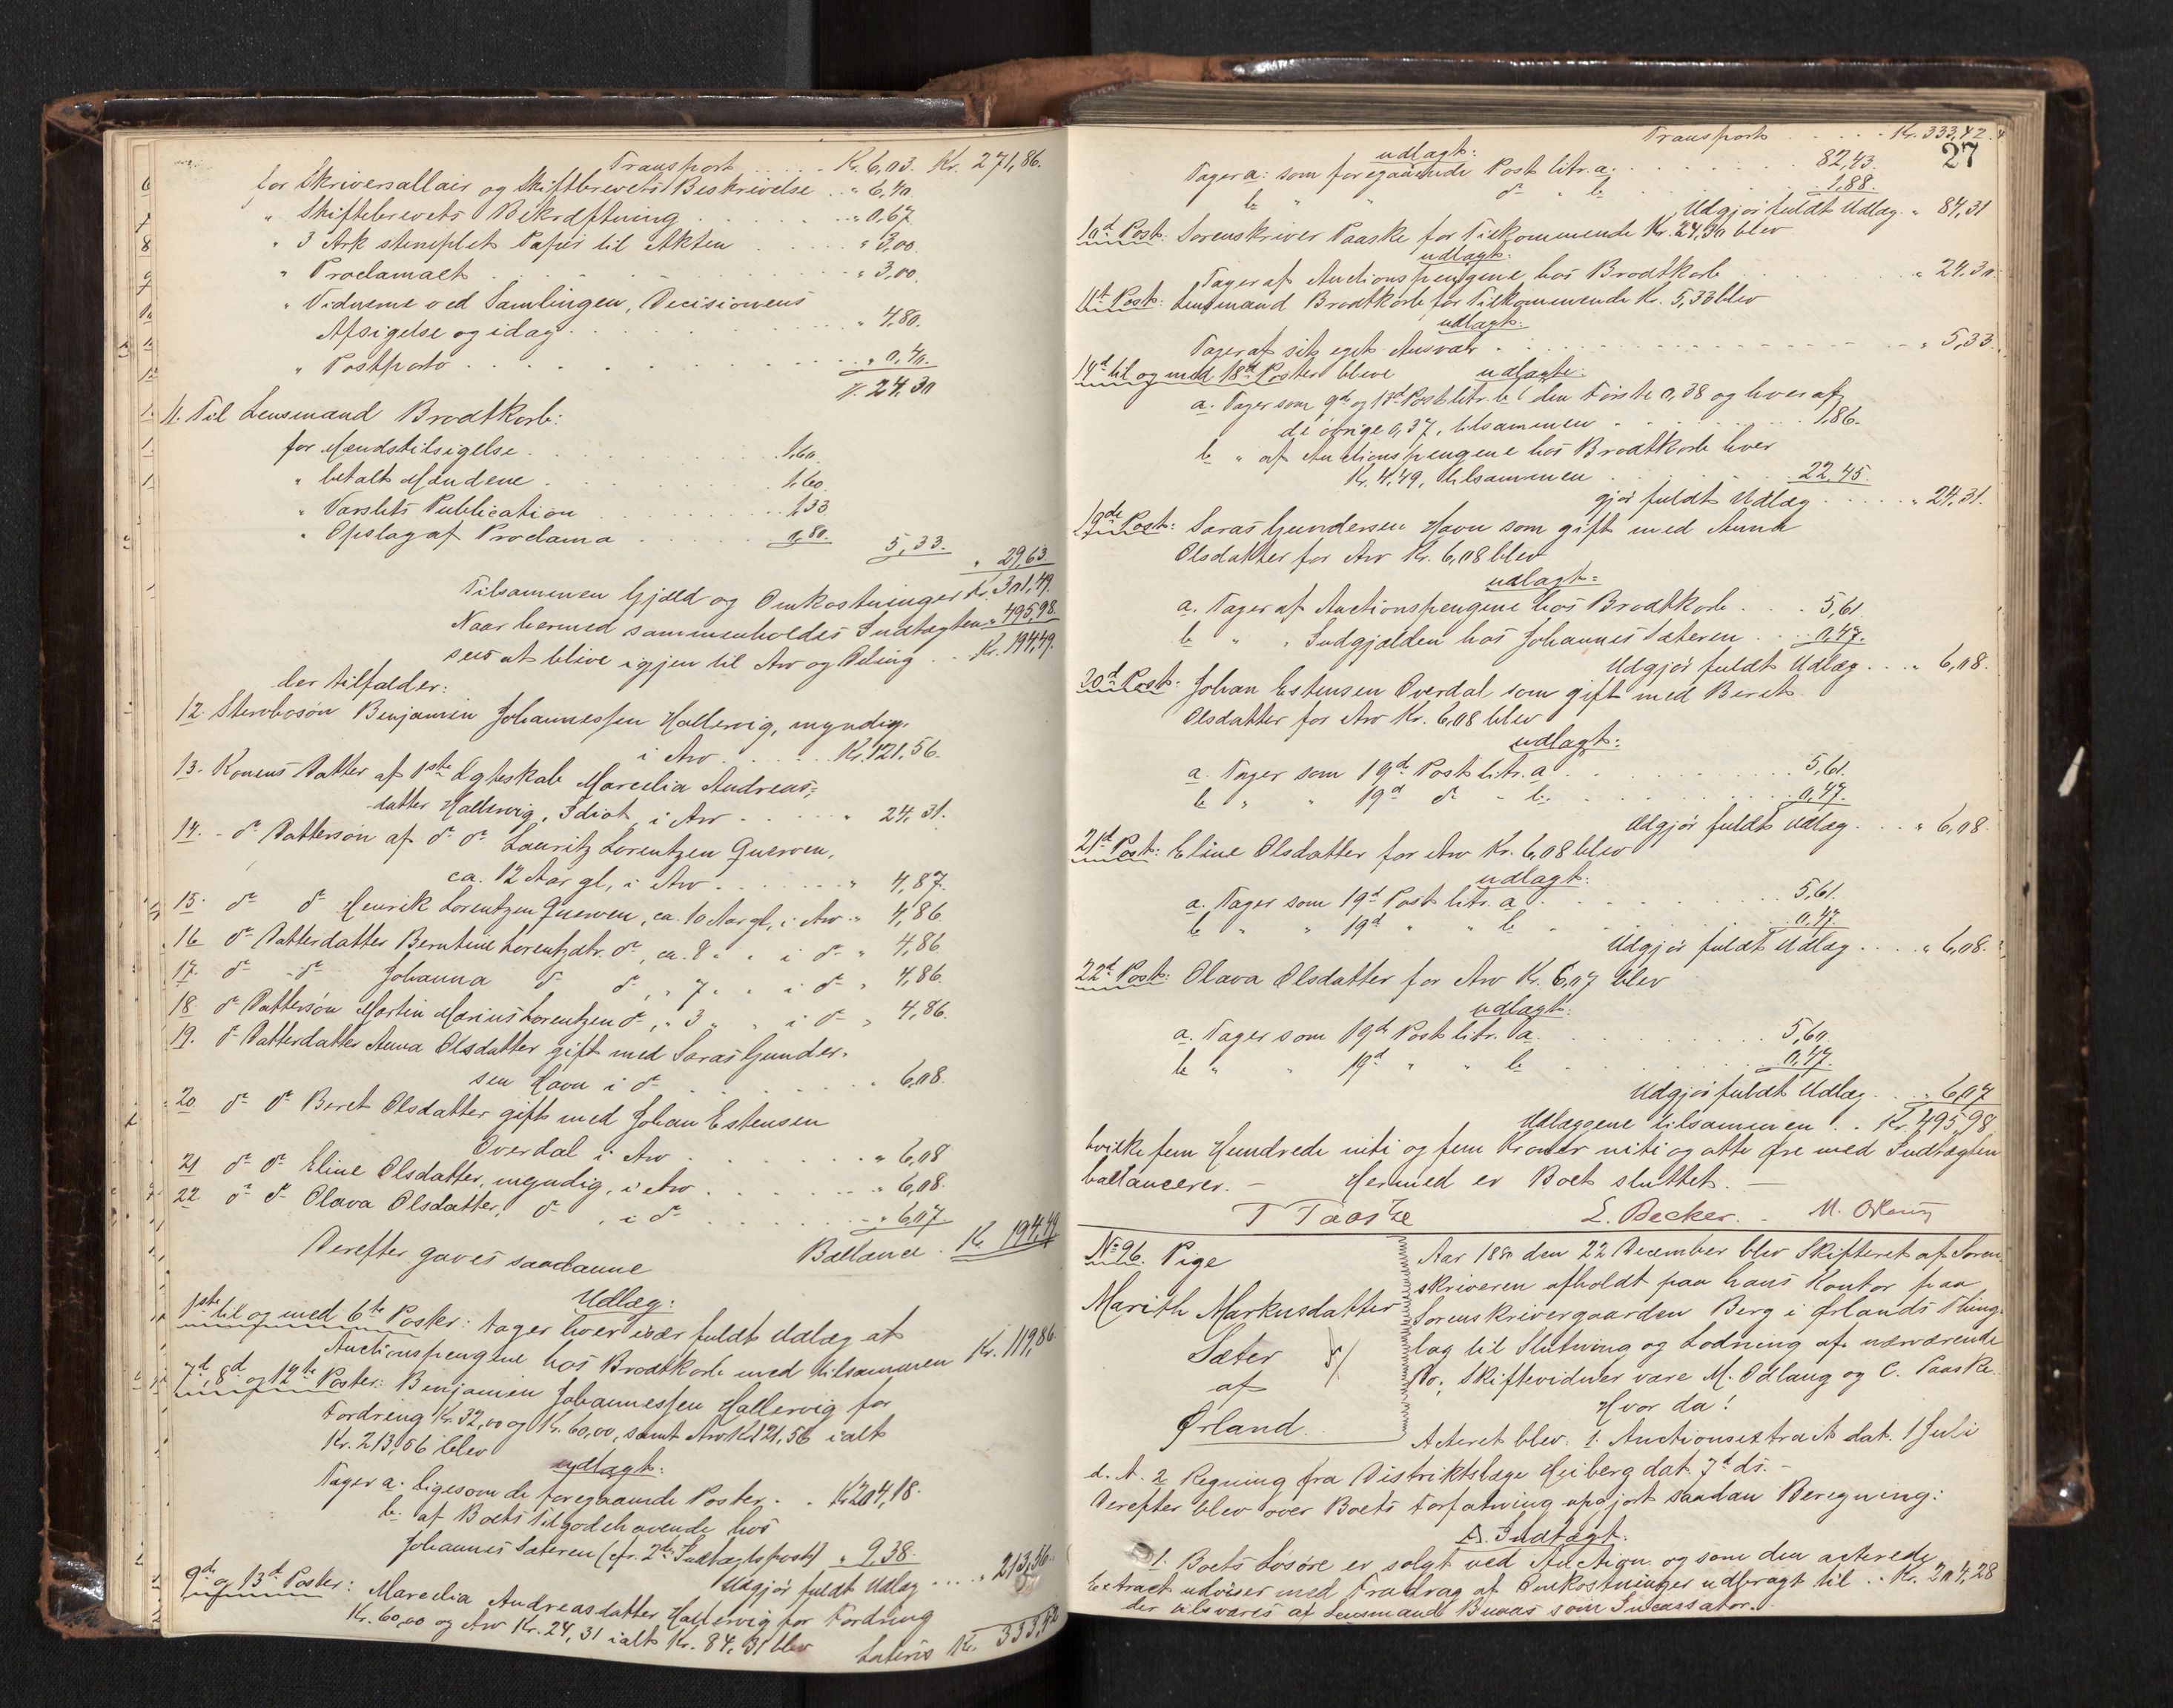 Transport . . . . Kr. 6,03. Kr. 271,86.
for Skriversallair og Skiftebrevets Beskrivelse . . „ 6,40
„ Skiftebrevets Bekræftning . . . . . „ 0,67
„ 3 Ark stemplet Papir til Akten . . . . „ 3,00.
„ Proclamaet . . . . . . . . „ 3,00.
„ Vidnerne ved Samlingen, Decisionens
Afsigelse og idag . . . . . . „ 4,80.
„ Postporto . . . . . . . . „ 0,40.
Kr. 24,30
11. Til Lensmand Brodtkorb:
for Mændstilsigelse . . . . . . 1,60.
„ betalt Mændene . . . . . . 1,60.
„ Varslets Publication . . . . . 1,33
„ Opslag af Proclama . . . . . 0,80. 5,33. „ 29,63
Tilsammen Gjæld og Omkostninger Kr. 301,49.
Naar hermed sammenholdes Indtægten „ 495,98.
sees at blive igjen til Arv og Deling . . Kr. 194,49.
der tilfalder:
12. Stervbosøn Benjamin Johannessen Hallervig, myndig,
i Arv . . . . . Kr. 121,56.
13. Konens Datter af 1ste Ægteskab Marcelia Andreas-
datter Hallervig, Idiot, i Arv . . . . „ 24,31.
14. - do Dattersøn af do do Lauritz Lorentzen Querven,
ca. 12 Aar gl., i Arv . . . . . „ 4,87.
15. do do Henrik Lorentzen Querven, ca. 10 Aar gl., i Arv „ 4,86.
16 do Datterdatter Berntine Lorentzdtr. do, ca. 8 „ „ i do „ 4,86
17. do - do Johanna do do, „ 7 „ „ i do „ 4,86.
18 do Dattersøn Martin Marius Lorentzen do, „ 3 „ „ i do „ 4,86.
19. do Datterdatter Anna Olsdatter gift med Saras Gunder-
sen Havn i do . . . . . . „ 6,08.
20 do do Beret Olsdatter gift med Johan Estensen
Overdal i Arv . . . . . . „ 6,08
21 do do Eline Olsdatter, myndig, i Arv . . . . „ 6,08.
22 do do Olava Olsdatter, do , i do . . . . „ 6,07
Ballance . Kr. 194,49
Derefter gaves saadanne
Udlæg:
1ste til og med 6te Poster: tager hver især fuldt Udlæg af
Auctionspengene hos Brodtkorb med tilsammen Kr. 119,86.
7d, 8d og 12te Poster: Benjamin Johannessen Hallervig for
Fordring Kr. 32,00 og Kr. 60,00, samt Arv Kr. 121,56 ialt
Kr. 213,56 blev
udlagt:
Tager a. ligesom de foregaaende Poster . . Kr. 204,18.
b. af Boets Tilgodehavende hos
Johannes Sæteren (cfr. 2den Indtægtspost) „ 9,38.
Udgjør fuldt Udlæg . . . . „ 213,56.
9de og 13d Poster: Marcelia Andreasdatter Hallervig for Fordring
Kr. 60,00 og Arv Kr. 24,31 ialt Kr. 84,31 blev
Lateris Kr. 333,42
Transport . . . . . Kr. 333,42.
27
udlagt:
Tager a: som foregaaende Post litr. a. . . . . . . 82,43.
b „ „ do b . . . . . . 1,88.
Udgjør fuldt Udlæg . „ 84,31
10d Post: Sorenskriver Paaske for Tilkommende Kr. 24,30 blev
udlagt:
Tager af Auctionspengene hos Brodtkorb . . . . . „ 24,30.
11t Post: Lensmand Brodtkorb for Tilkommende Kr. 5,33 blev
udlagt:
Tager af sit eget Ansvar . . . . . . . . . „ 5,33.
14d til og med 18d Poster bleve udlagte:
a. Tager som 9de og 13d Post litr. b (den Første 0,38 og hver af
de øvrige 0,37, tilsammen . . . . . . 1,86.
b „ af Auctionspengene hos Brodtkorb hver
Kr. 4,49, tilsammen . . . . . 22,45.
gjør fuldt Udlæg . . . . . „ 24,31.
19de Post: Saras Gundersen Havn som gift med Anna
Olsdatter for Arv Kr. 6,08 blev
udlagt:
a. Tager af Auctionspengene hos Brodtkorb . . . 5,61
b „ „ Indgjælden hos Johannes Sæteren . . . 0,47.
Udgjør fuldt Udlæg . . . . „ 6,08.
20d Post: Johan Estensen Overdal som gift med Beret
Olsdatter for Arv Kr. 6,08 blev
udlagt:
a. Tager som 19de Post litr. a . . . . . . 5,61.
b „ „ 19d do - b . . . . . . 0,47.
Udgjør fuldt Udlæg . . . „ 6,08.
21d Post: Eline Olsdatter for Arv Kr. 6,08 blev
udlagt:
a. Tager som 19d Post litr. a . . . . . . 5,61.
b „ „ 19d „ „ b . . . . . . 0,47.
Udgjør fuldt Udlæg . . . . „ 6,08.
22d Post: Olava Olsdatter for Arv Kr. 6,07 blev
udlagt:
a. Tager som 19de Post litr. a. . . . . . . 5,60.
b „ „ 19d „ „ b . . . . . . 0,47.
Udgjør fuldt Udlæg . . „ 6,07
Udlæggene tilsammen . . Kr. 495,98.
hvilke fem Hundrede niti og fem Kroner niti og otte Øre med Indtægten
ballancerer. — Hermed er Boet sluttet. —
T Paaske L. Becker. M. Odlaug
No 96. Pige
Marith Markusdatter
Sæter
af
Ørland.
Aar 1880 den 22 December blev Skifteret af Soren-
skriveren afholdt paa hans Kontor paa
Sorenskrivergaarden Berg i Ørlands Thing-
lag til Slutning og Lodning af nærværende
Bo; Skiftevidner vare M. Odlaug og C. Paaske.
Hvor da!
Acteret blev: 1. Auctionsextract dat. 1 Juli
d. A. 2 Regning fra Distriktslæge Heiberg dat. 7d ds. -
Derefter blev over Boets Forfatning opgjort saadan Beregning:
A. Indtægt:
1. Boets Løsøre er solgt ved Auction og som den acterede
Extract udviser med Fradrag af Omkostninger udbragt til . . Kr. 204,28
der tilsvares af Lensmand Buaas som Incassator.